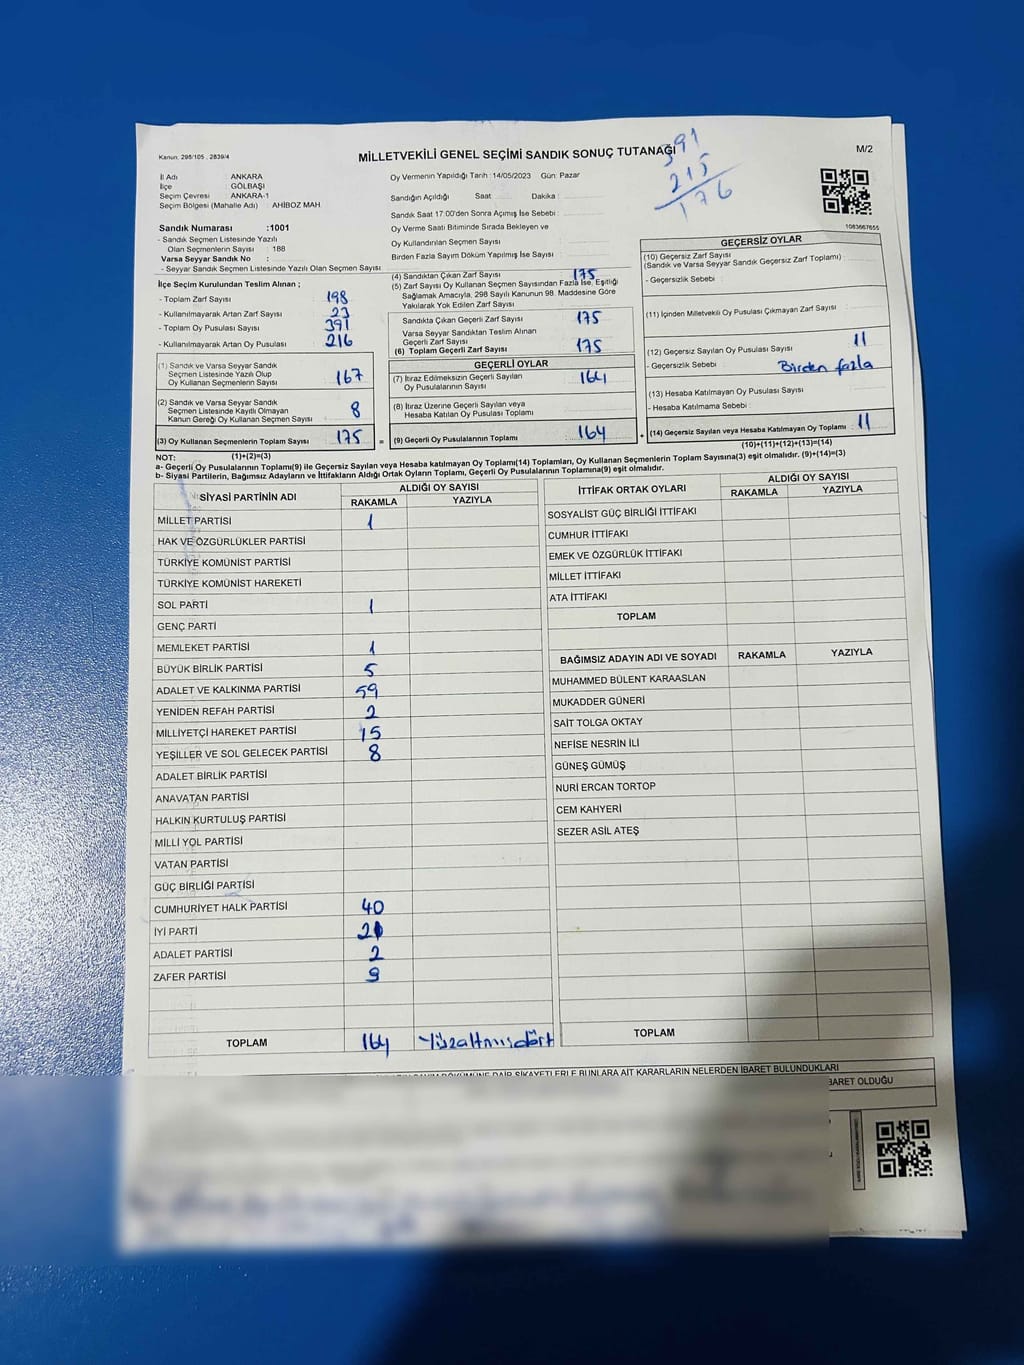 Kanun, 298/105 , 2839/4
MİLLETVEKİLİ GENEL SEÇİMİ SANDIK SONUÇ TUTANAĞI
M/2
391
215
176
İl Adı : ANKARA
İlçe : GÖLBAŞI
Seçim Çevresi : ANKARA-1
Seçim Bölgesi (Mahalle Adı) : AHİBOZ MAH
Sandık Numarası :1001
- Sandık Seçmen Listesinde Yazılı
Olan Seçmenlerin Sayısı : 188
Varsa Seyyar Sandık No :
- Seyyar Sandık Seçmen Listesinde Yazılı Olan Seçmen Sayısı
Oy Vermenin Yapıldığı Tarih : 14/05/2023 Gün: Pazar
Sandığın Açıldığı Saat Dakika :
Sandık Saat 17:00'den Sonra Açımış İse Sebebi :
Oy Verme Saati Bitiminde Sırada Bekleyen ve
Oy Kullandırılan Seçmen Sayısı :
Birden Fazla Sayım Döküm Yapılmış İse Sayısı :
1083667655
İlçe Seçim Kurulundan Teslim Alınan ;
- Toplam Zarf Sayısı : 198
- Kullanılmayarak Artan Zarf Sayısı : 23
- Toplam Oy Pusulası Sayısı : 391
- Kullanılmayarak Artan Oy Pusulası : 216
(1) Sandık ve Varsa Seyyar Sandık
Seçmen Listesinde Yazılı Olup
Oy Kullanan Seçmenlerin Sayısı : 167
(2) Sandık ve Varsa Seyyar Sandık
Seçmen Listesinde Kayıtlı Olmayan
Kanun Gereği Oy Kullanan Seçmen Sayısı : 8
(3) Oy Kullanan Seçmenlerin Toplam Sayısı : 175 =
(4) Sandıktan Çıkan Zarf Sayısı : 175
(5) Zarf Sayısı Oy Kullanan Seçmen Sayısından Fazla İse, Eşitliği
Sağlamak Amacıyla, 298 Sayılı Kanunun 98. Maddesine Göre
Yakılarak Yok Edilen Zarf Sayısı :
Sandıkta Çıkan Geçerli Zarf Sayısı : 175
Varsa Seyyar Sandıktan Teslim Alınan
Geçerli Zarf Sayısı :
(6) Toplam Geçerli Zarf Sayısı : 175
GEÇERLİ OYLAR
(7) İtiraz Edilmeksizin Geçerli Sayılan
Oy Pusulalarının Sayısı : 164
(8) İtiraz Üzerine Geçerli Sayılan veya
Hesaba Katılan Oy Pusulası Toplamı :
(9) Geçerli Oy Pusulalarının Toplamı : 164 +
GEÇERSİZ OYLAR
(10) Geçersiz Zarf Sayısı
(Sandık ve Varsa Seyyar Sandık Geçersiz Zarf Toplamı) :
- Geçersizlik Sebebi :
(11) İçinden Milletvekili Oy Pusulası Çıkmayan Zarf Sayısı :
(12) Geçersiz Sayılan Oy Pusulası Sayısı : 11
- Geçersizlik Sebebi : Birden fazla
(13) Hesaba Katılmayan Oy Pusulası Sayısı :
- Hesaba Katılmama Sebebi :
(14) Geçersiz Sayılan veya Hesaba Katılmayan Oy Toplamı : 11
NOT: (1)+(2)=(3)
(10)+(11)+(12)+(13)=(14)
a- Geçerli Oy Pusulalarının Toplamı(9) ile Geçersiz Sayılan veya Hesaba katılmayan Oy Toplamı(14) Toplamları, Oy Kullanan Seçmenlerin Toplam Sayısına(3) eşit olmalıdır. (9)+(14)=(3)
b- Siyasi Partilerin, Bağımsız Adayların ve İttifakların Aldığı Ortak Oyların Toplamı, Geçerli Oy Pusulalarının Toplamına(9) eşit olmalıdır.
SİYASİ PARTİNİN ADI ALDIĞI OY SAYISI
RAKAMLA YAZIYLA
MİLLET PARTİSİ 1
HAK VE ÖZGÜRLÜKLER PARTİSİ
TÜRKİYE KOMÜNİST PARTİSİ
TÜRKİYE KOMÜNİST HAREKETİ
SOL PARTİ 1
GENÇ PARTİ
MEMLEKET PARTİSİ 1
BÜYÜK BİRLİK PARTİSİ 5
ADALET VE KALKINMA PARTİSİ 59
YENİDEN REFAH PARTİSİ 2
MİLLİYETÇİ HAREKET PARTİSİ 15
YEŞİLLER VE SOL GELECEK PARTİSİ 8
ADALET BİRLİK PARTİSİ
ANAVATAN PARTİSİ
HALKIN KURTULUŞ PARTİSİ
MİLLİ YOL PARTİSİ
VATAN PARTİSİ
GÜÇ BİRLİĞİ PARTİSİ
CUMHURİYET HALK PARTİSİ 40
İYİ PARTİ 21
ADALET PARTİSİ 2
ZAFER PARTİSİ 9
TOPLAM 164 Yüzaltmışdört
İTTİFAK ORTAK OYLARI ALDIĞI OY SAYISI
RAKAMLA YAZIYLA
SOSYALİST GÜÇ BİRLİĞİ İTTİFAKI
CUMHUR İTTİFAKI
EMEK VE ÖZGÜRLÜK İTTİFAKI
MİLLET İTTİFAKI
ATA İTTİFAKI
TOPLAM
BAĞIMSIZ ADAYIN ADI VE SOYADI RAKAMLA YAZIYLA
MUHAMMED BÜLENT KARAASLAN
MUKADDER GÜNERİ
SAİT TOLGA OKTAY
NEFİSE NESRİN İLİ
GÜNEŞ GÜMÜŞ
NURİ ERCAN TORTOP
CEM KAHYERİ
SEZER ASİL ATEŞ
TOPLAM
DÖKÜMÜNE DAİR ŞİKAYETLERLE BUNLARA AİT KARARLARIN NELERDEN İBARET BULUNDUKLARI
BARET OLDUĞU